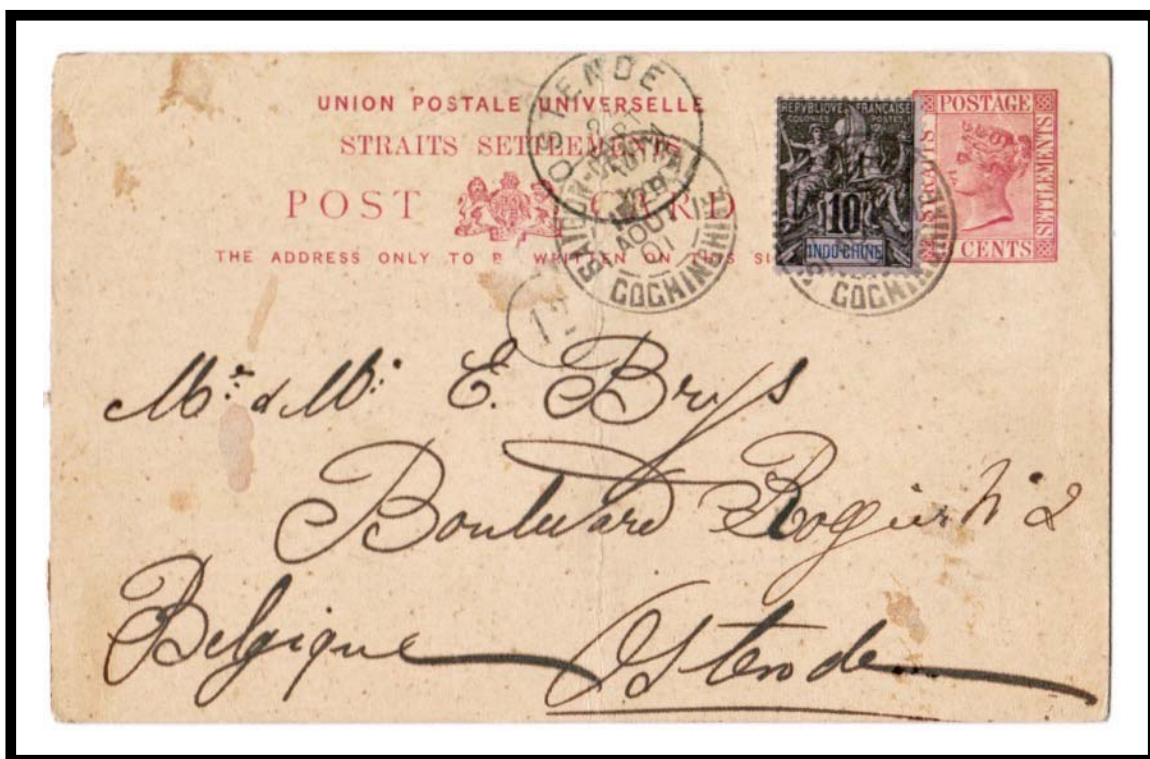 UNION POSTALE UNIVERSELLE
STRAITS SETTLEMENTS
POST CARD
THE ADDRESS ONLY TO BE WRITTEN ON THIS SI
OSTENDE
SAIGON-CENTRAL
28
AOUT
01
COCHINCHINE
REPVBLIQVE FRANÇAISE
COLONIES POSTES
10
INDO-CHINE
COCHINCHINE
POSTAGE
STRAITS
SETTLEMENTS
CENTS
12
Mr & Me E. Brys
Boulevard Rogier No 2
Belgique Ostende